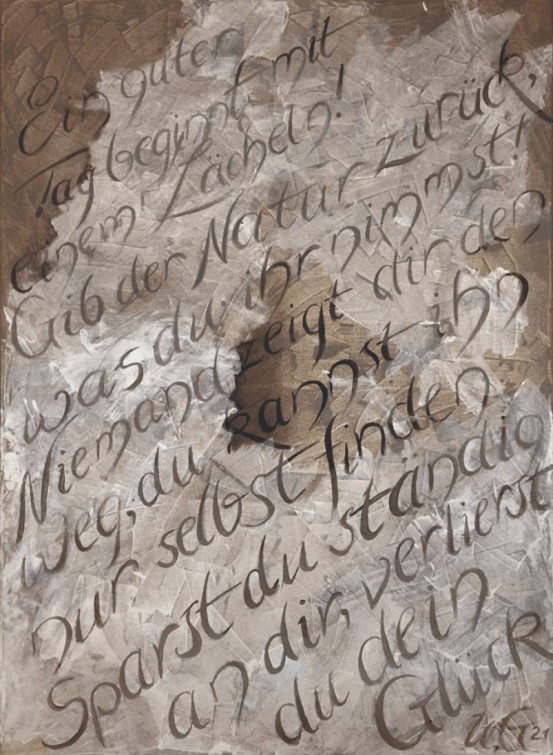 Ein guter
Tag beginnt mit
einem Lächeln!
Gib der Natur zurück,
was du ihr nimmst!
Niemand zeigt dir den
weg, du kannst ihn
nur selbst finden
Sparst du ständig
an dir, verlierst
du dein
Glück